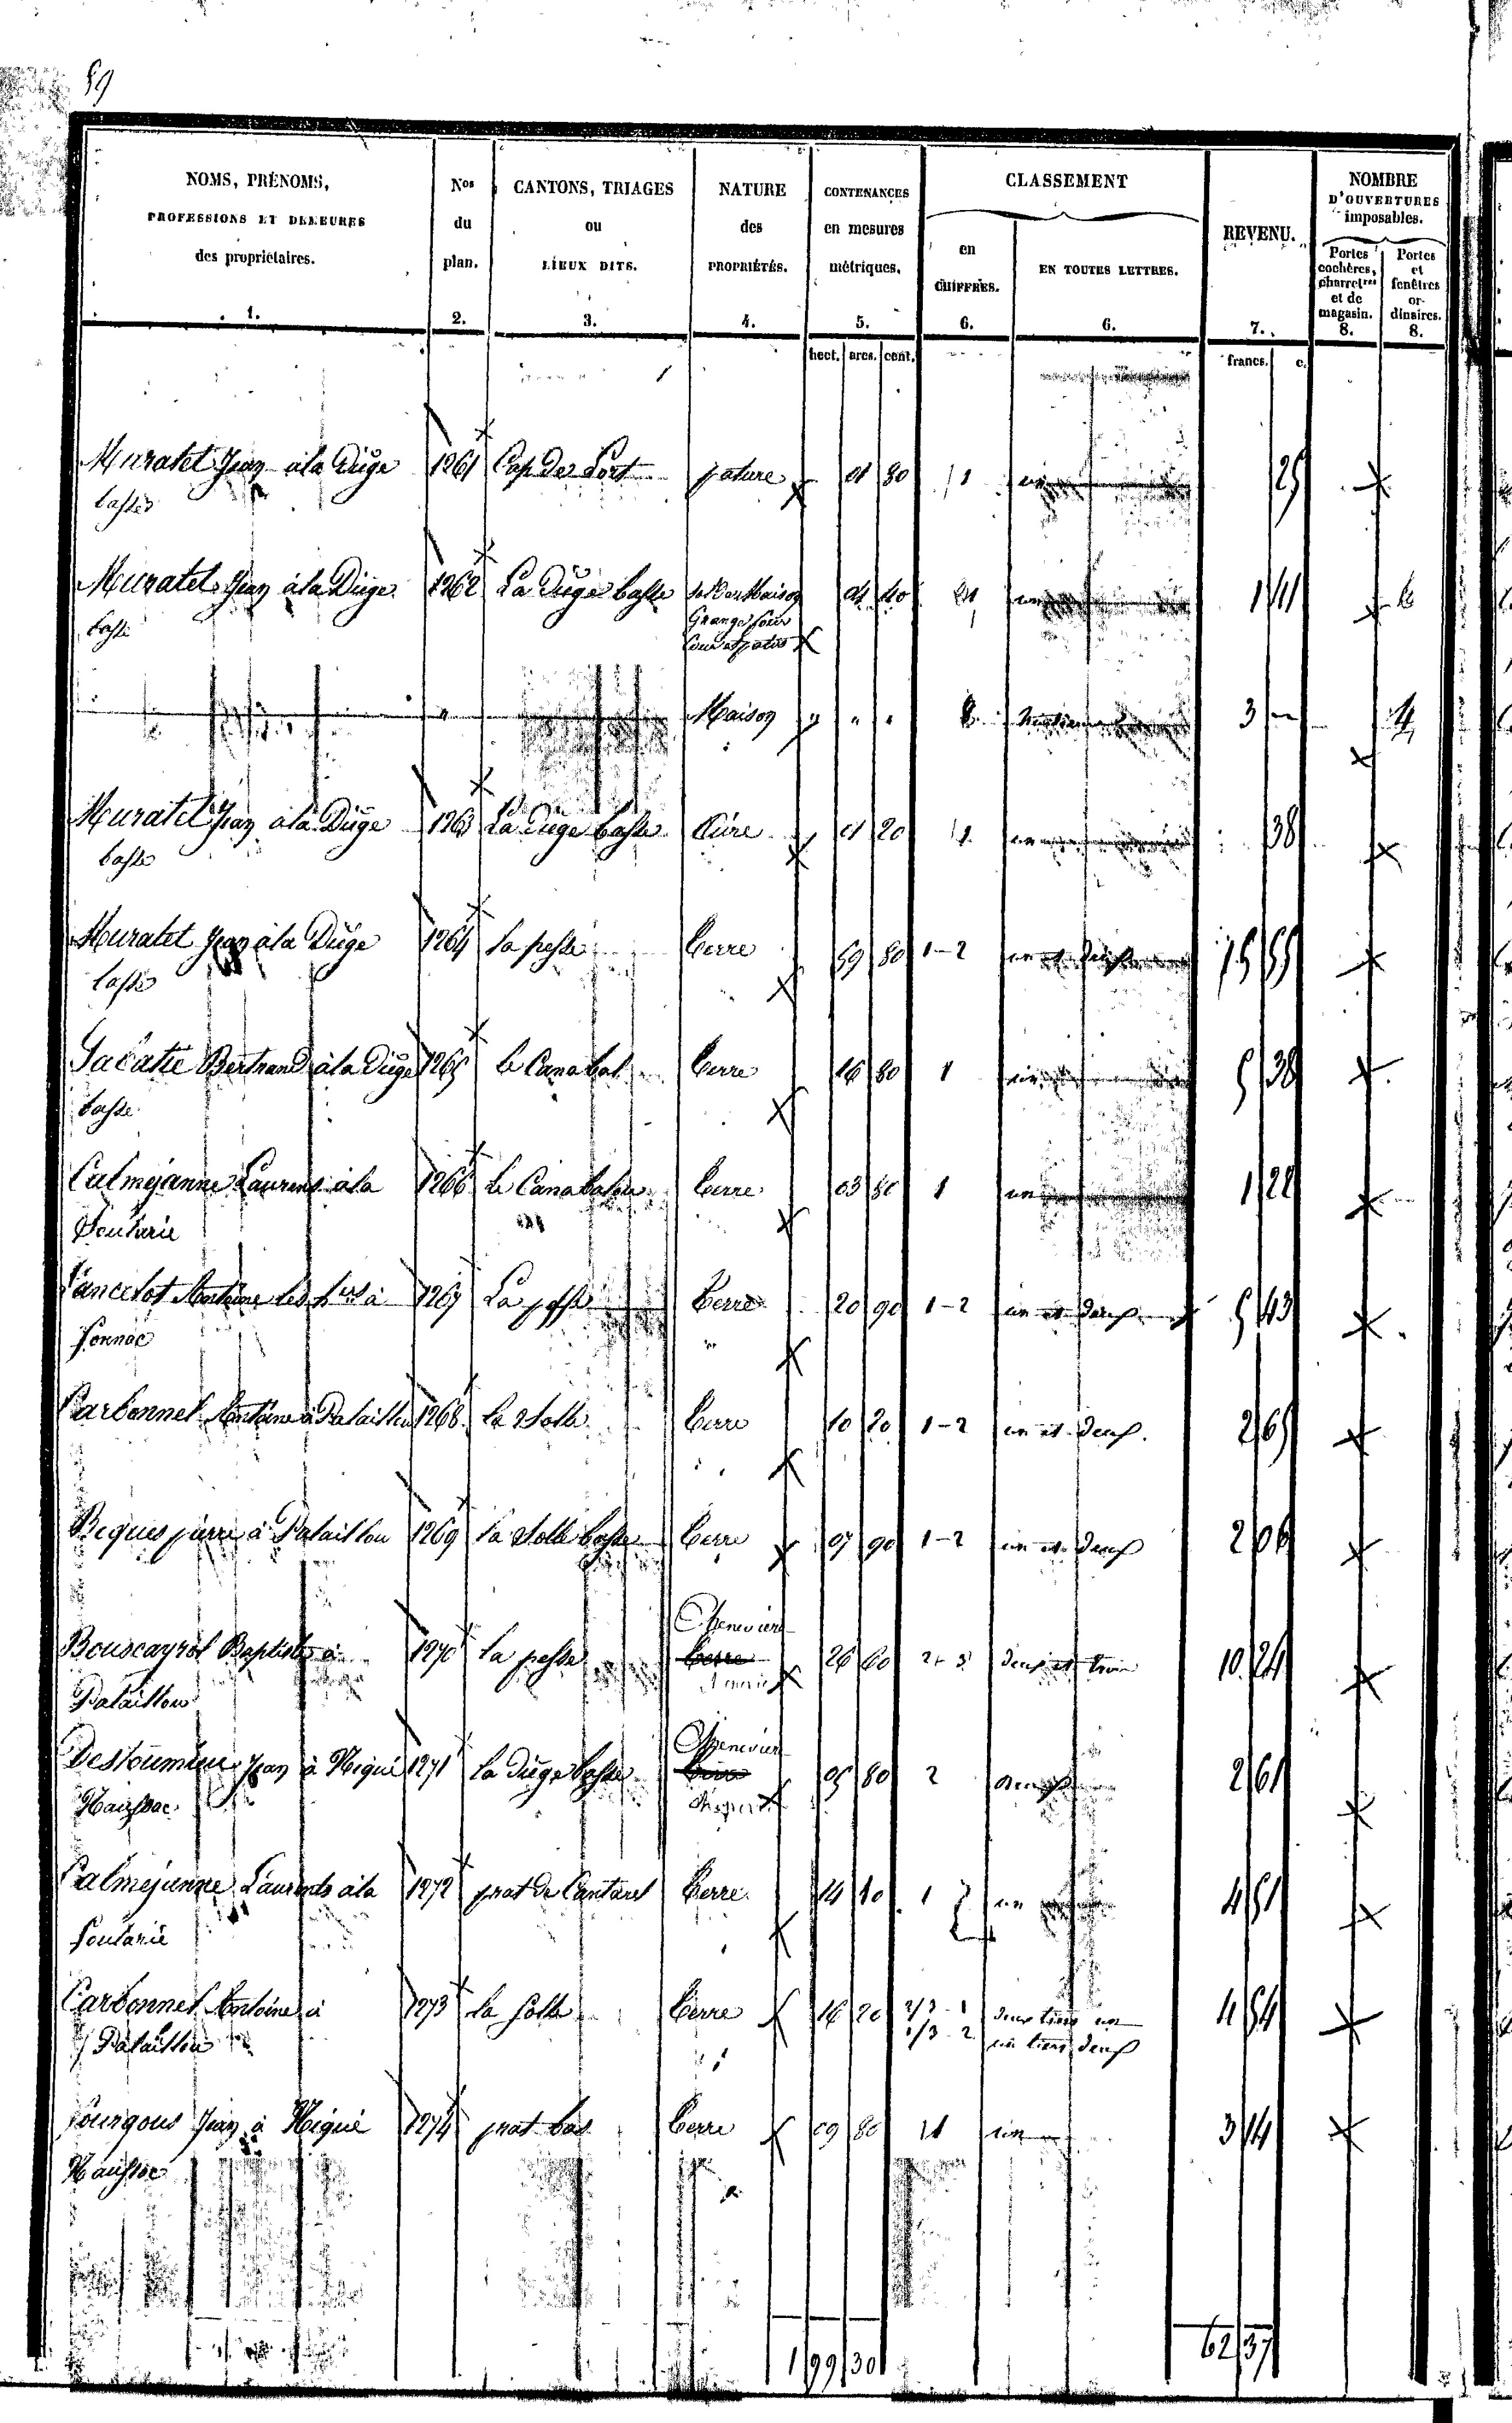 59
NOMS, PRÉNOMS, PROFESSIONS ET DEMEURES des propriétaires. 1.
Nos du plan. 2.
CANTONS, TRIAGES ou LIEUX DITS. 3.
NATURE des PROPRIÉTÉS. 4.
CONTENANCES en mesures métriques. 5.
CLASSEMENT
en CHIFFRES. 6.
EN TOUTES LETTRES. 6.
REVENU. 7.
NOMBRE D'OUVERTURES imposables.
Portes cochères, charretres et de magasin. 8.
Portes et fenêtres ordinaires. 8.
hect. ares. cent. francs. c.
Muratet Jean à la Diège 1261 Cap de Lort pature 01 80 1 un 25
basse
Muratet Jean à la Diège 1262 La Diège basse Sol de Maison 04 40 1 1 41
basse Grange four
cour et patus
" Maison " " " 3
Muratet Jean à la Diège 1263 La Diège basse 01 20 1 38
basse
Muratet Jean à la Diège 1264 la pesse terre 59 80 1-2 un et deux 15 55
basse
Bertrand à la Diège 1265 le Canabal terre 16 80 1 un 5 38
basse
Calmejanne Laurens à la 1266 le Canabal terre 03 80 1 un 1 22
Foularie
Antoine les hers à 1267 La pesse terre 20 90 1-2 un et deux 5 43
Fonnac
Carbonnel Antoine à Palaillou 1268 la Solle terre 10 20 1-2 un et deux 2 65
Beques pierre à Palaillou 1269 la Solle basse terre 07 90 1-2 un et deux 2 06
Chenevière
Bouscayrol Baptiste à 1270 la pesse terre 26 60 2-3 deux et trois 10 24
Palaillou
Chenevière
Jean à 1271 la Diège basse terre 05 80 2 deux 2 61
Calmejanne Laurents à la 1272 prat de Cantarel terre 14 10 1 un 4 51
Foularie
Carbonnel Antoine à 1273 la Solle terre 16 20 2/3-1 deux tiers un 4 54
Palaillou 1/3-2 un tiers deux
Fourgous Jean à 1274 prat bas terre 09 80 1 un 3 14
1 99 30 62 37